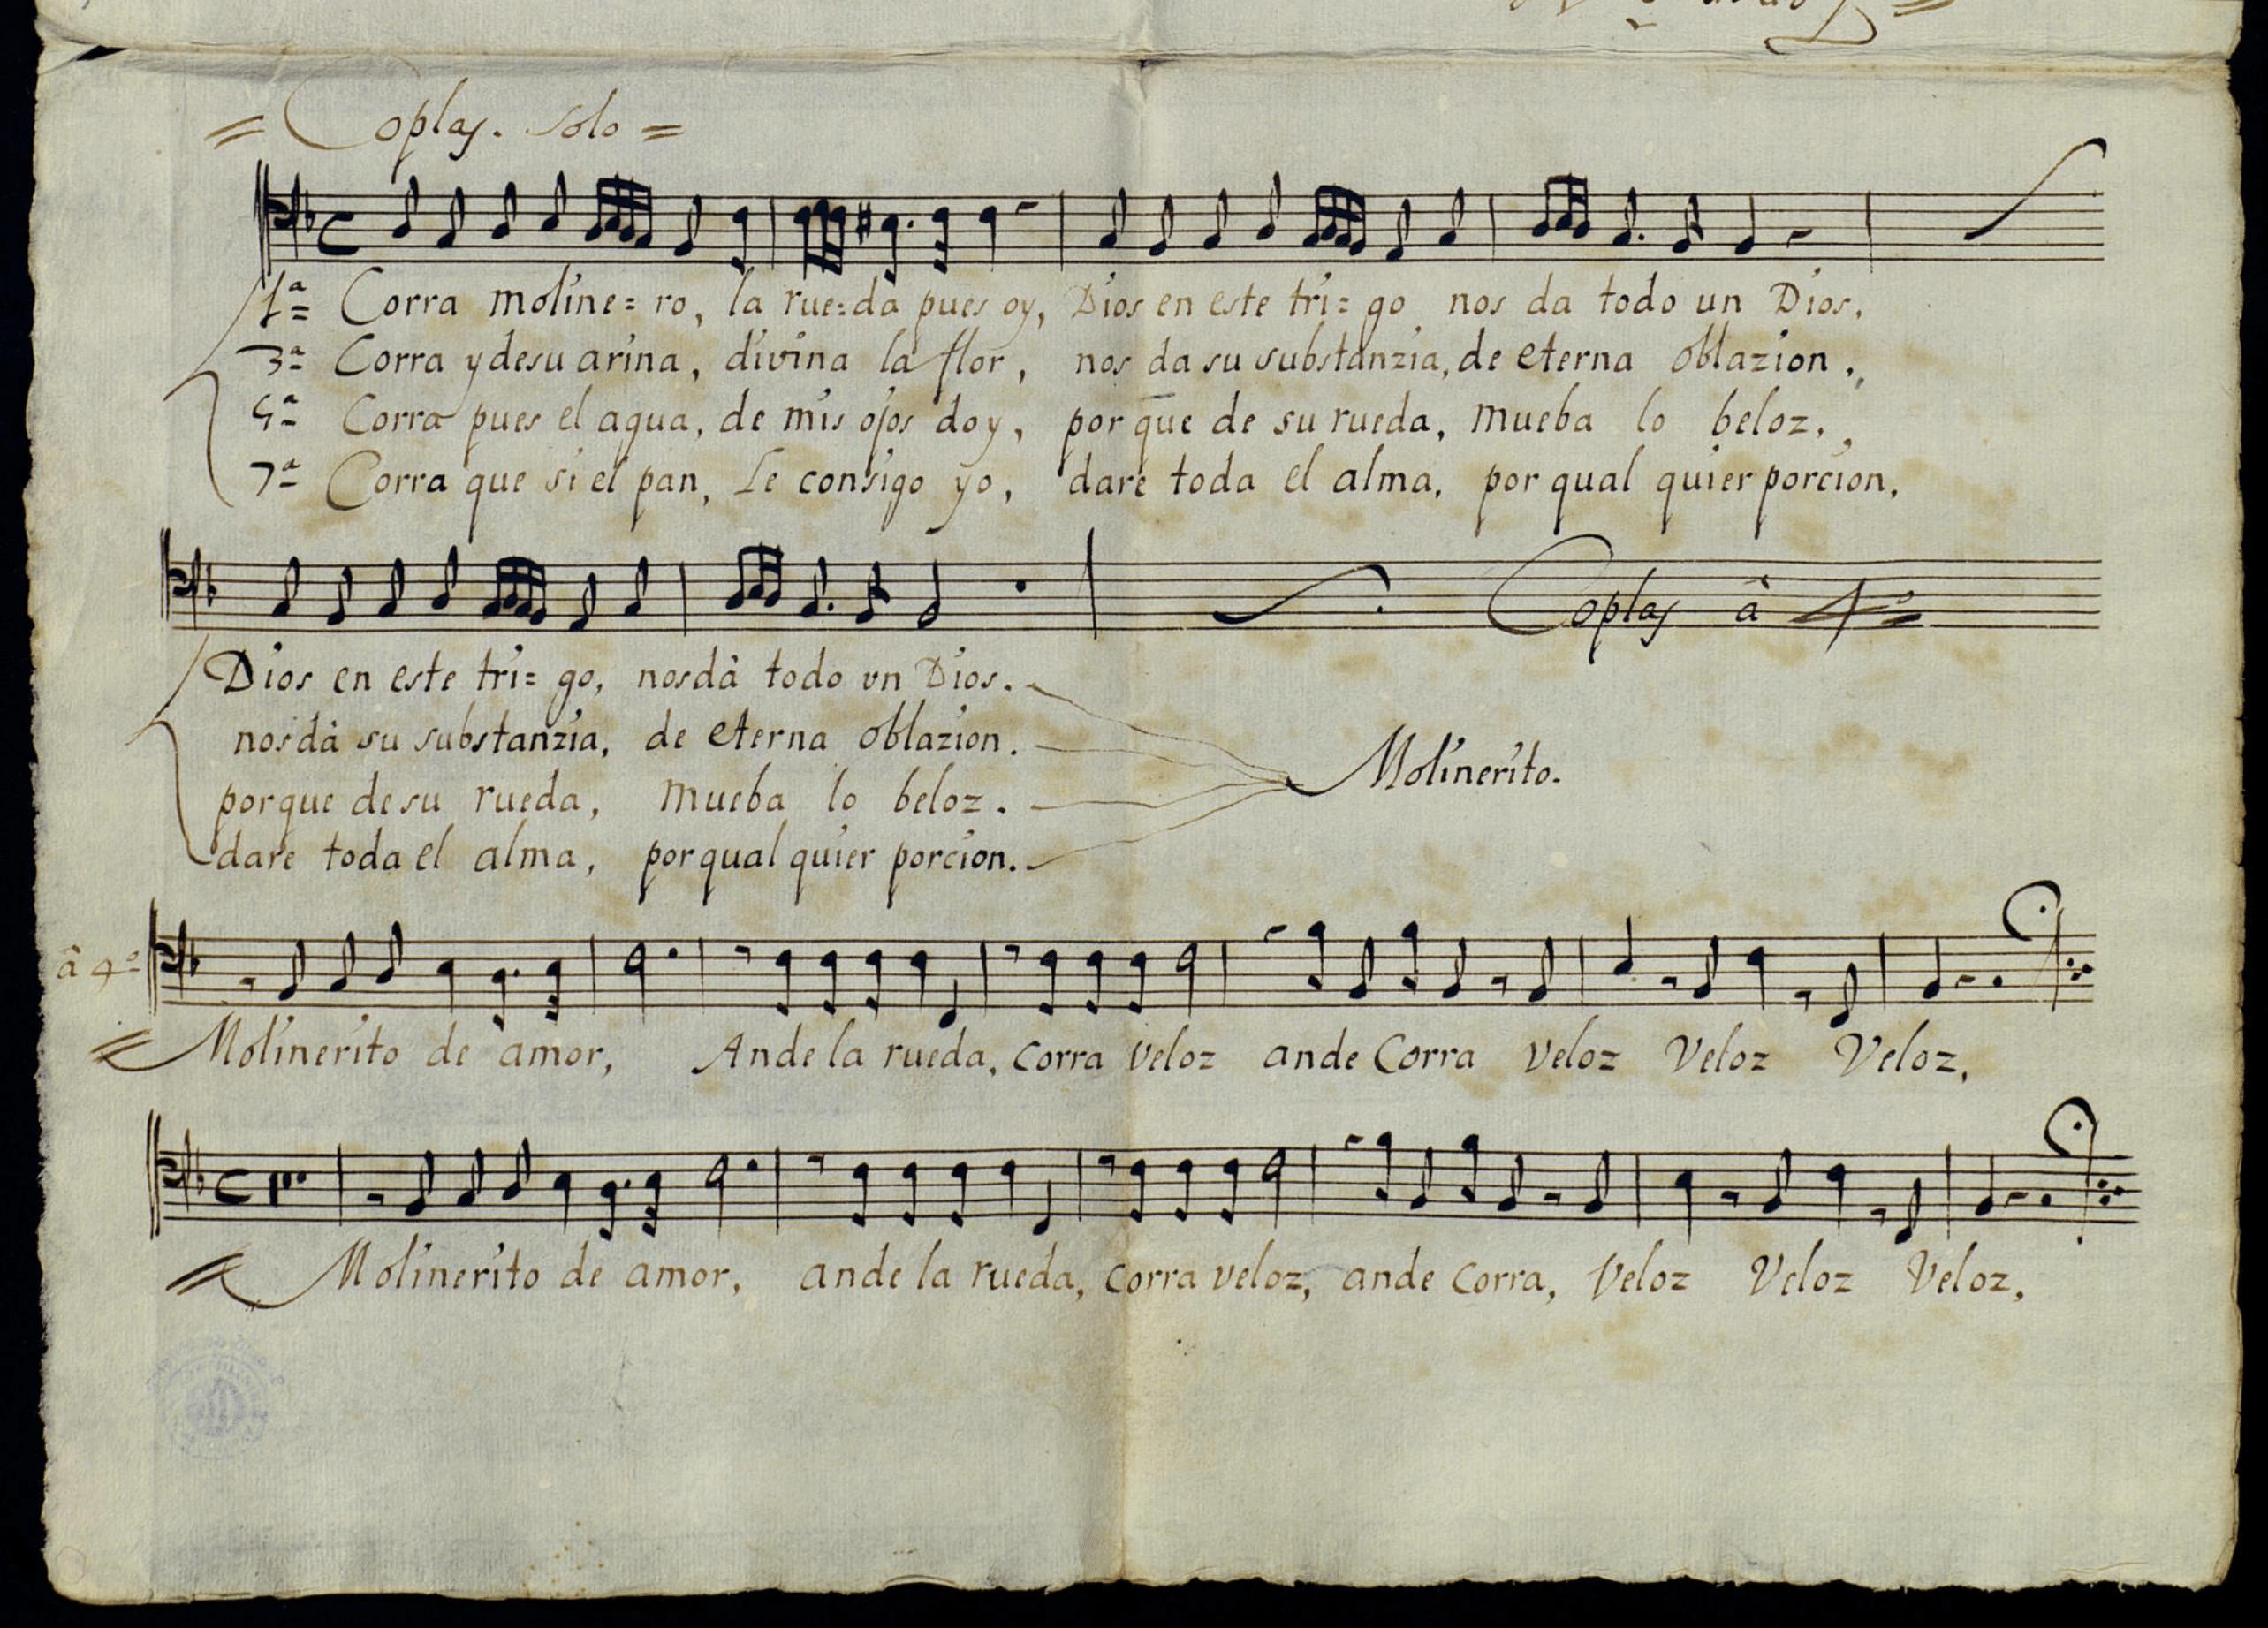 = Coplas. Solo =
1ª= Corra moline= ro, la rue=da pues oy, Dios en este tri= go nos da todo un Dios,
3ª= Corra y desu arina, divina la flor, nos da su substanzia, de eterna oblazion.,
5ª= Corra pues el agua, de mis ojos doy, por que de su rueda, mueba lo beloz.,
7ª= Corra que si el pan, Le consigo yo, dare toda el alma, por qual quier porcion.
Coplas â 4º=
Dios en este tri= go, nosdà todo vn Dios.
nosdà su substanzia, de eterna oblazion.
porque desu rueda, mueba lo beloz.
Molinerito.
dare toda el alma, porqual quier porcion.
â 4º=
= Molinerito de amor, Ande la rueda, corra veloz ande Corra veloz Veloz Veloz,
= Molinerito de amor, ande la rueda, corra veloz, ande corra, Veloz Veloz Veloz,